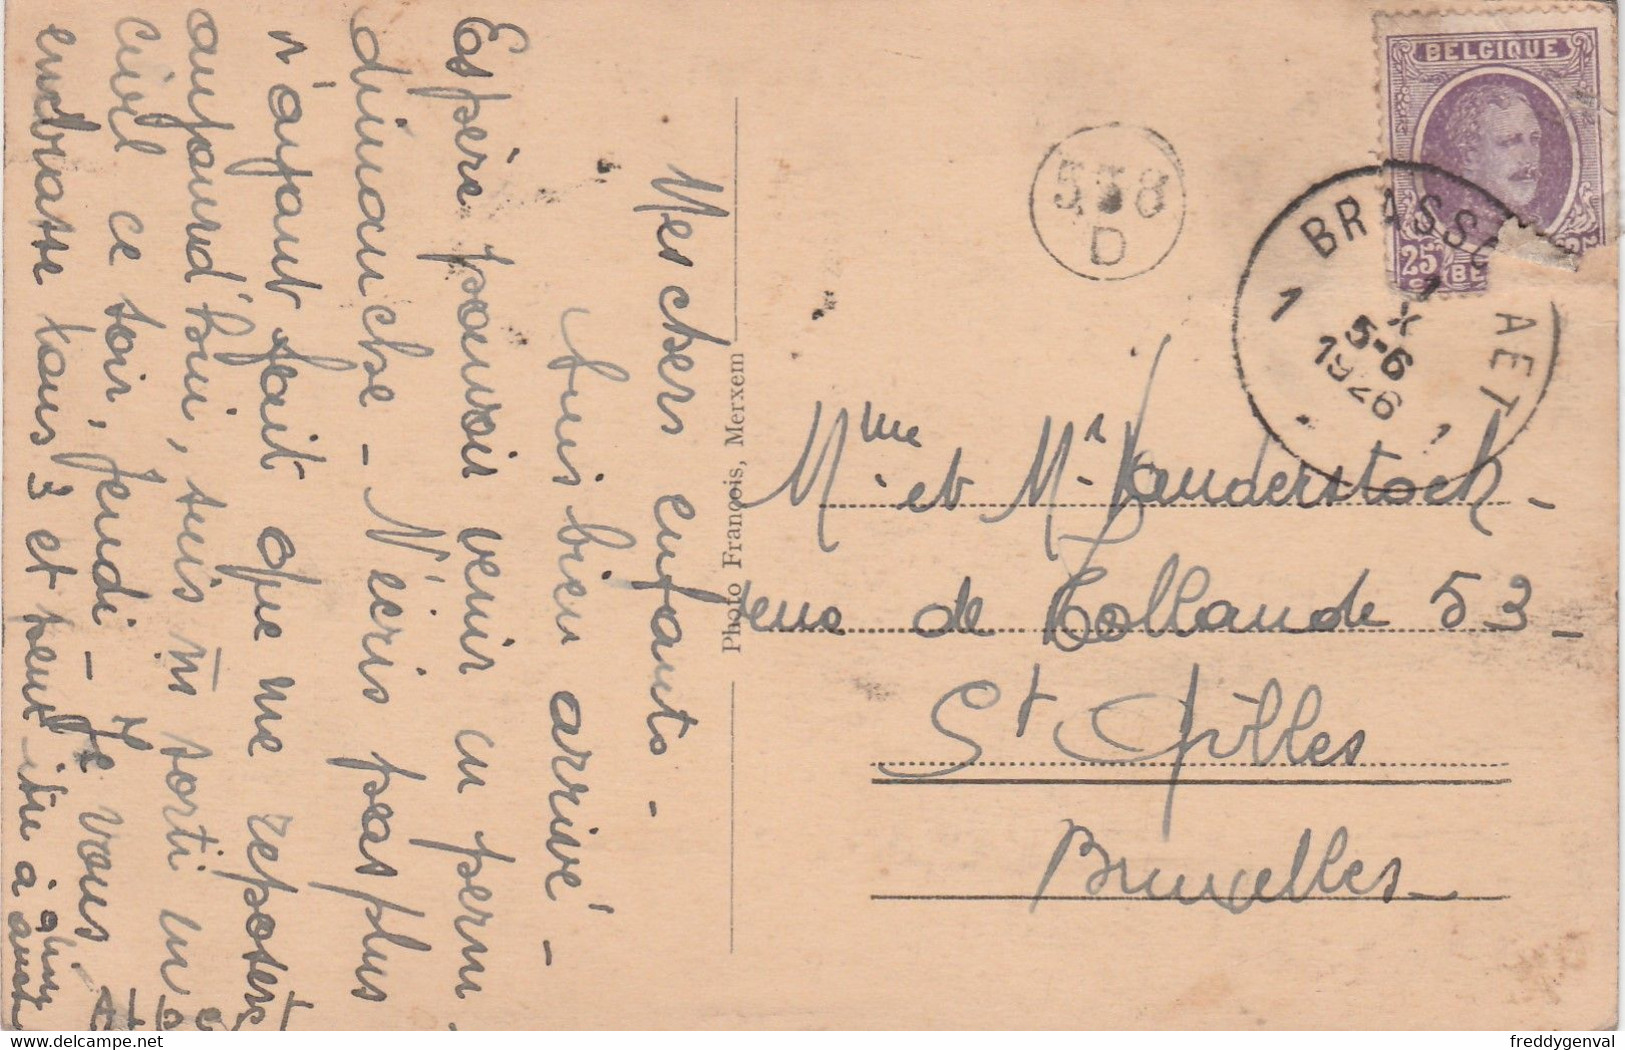 Mes chers enfants -
suis bien arrivé -
Espère pouvoir venir en perm
dimanche - N'écris pas plus
n'ayant fait que me reposer
aujourd'hui, suis sorti
civil ce soir, jeudi - Je vous
embrasse tous 3 et peut être à
BELGIQUE
25
BRASSC AET
1 1
1
X
5-6
1926
558
D
Photo François, Merxem
Mme et Mr Vanderstock -
rue de Hollande 53 -
St Gilles
Bruxelles -
freddygenval